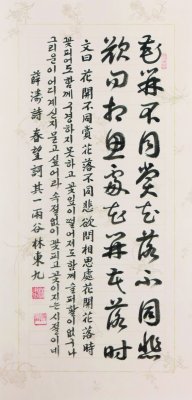 花開不同賞花落不同悲
欲問相思處花開花落時
文曰 花開不同賞花落不同悲欲問相思處花開花落時
꽃피어도함께구경하지못하고꽃잎이떨어져도함께슬퍼할이없구나
그리운이어디계신지묻고싶어라속절없이꽃피고꽃이지는시절이네
薛濤詩 春望詞其一 雨谷林東九